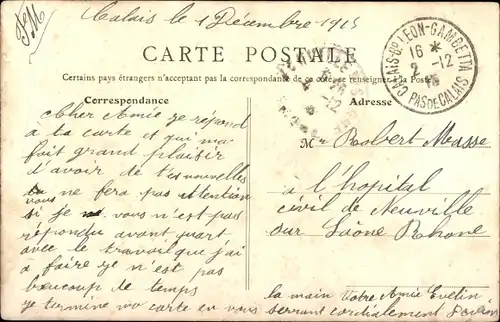 FM
Calais le 1 Décembre 1915
CARTE POSTALE
Certains pays étrangers n'acceptent pas la correspondance de ce côté, se renseigner à la Poste
CALAIS-Bd LEON-GAMBETTA
16 *
2 -12
15
PAS DE CALAIS
Correspondance
Adresse
Cher Amie je répond
a ta carte et qui ma
fait grand plaisir
d'avoir de tes nouvelles
vous ne fera pas attention
si je vous n'est pas
répondu avant part
avec le travail que j'ai
a faire je n'est pas
beaucoup de temps
je termine ma carte en vous
la main Votre Amie Evelin
serrant cordialement
Mr Robert Masse
à l'hopital
civil de Neuville
sur Saone Rhone